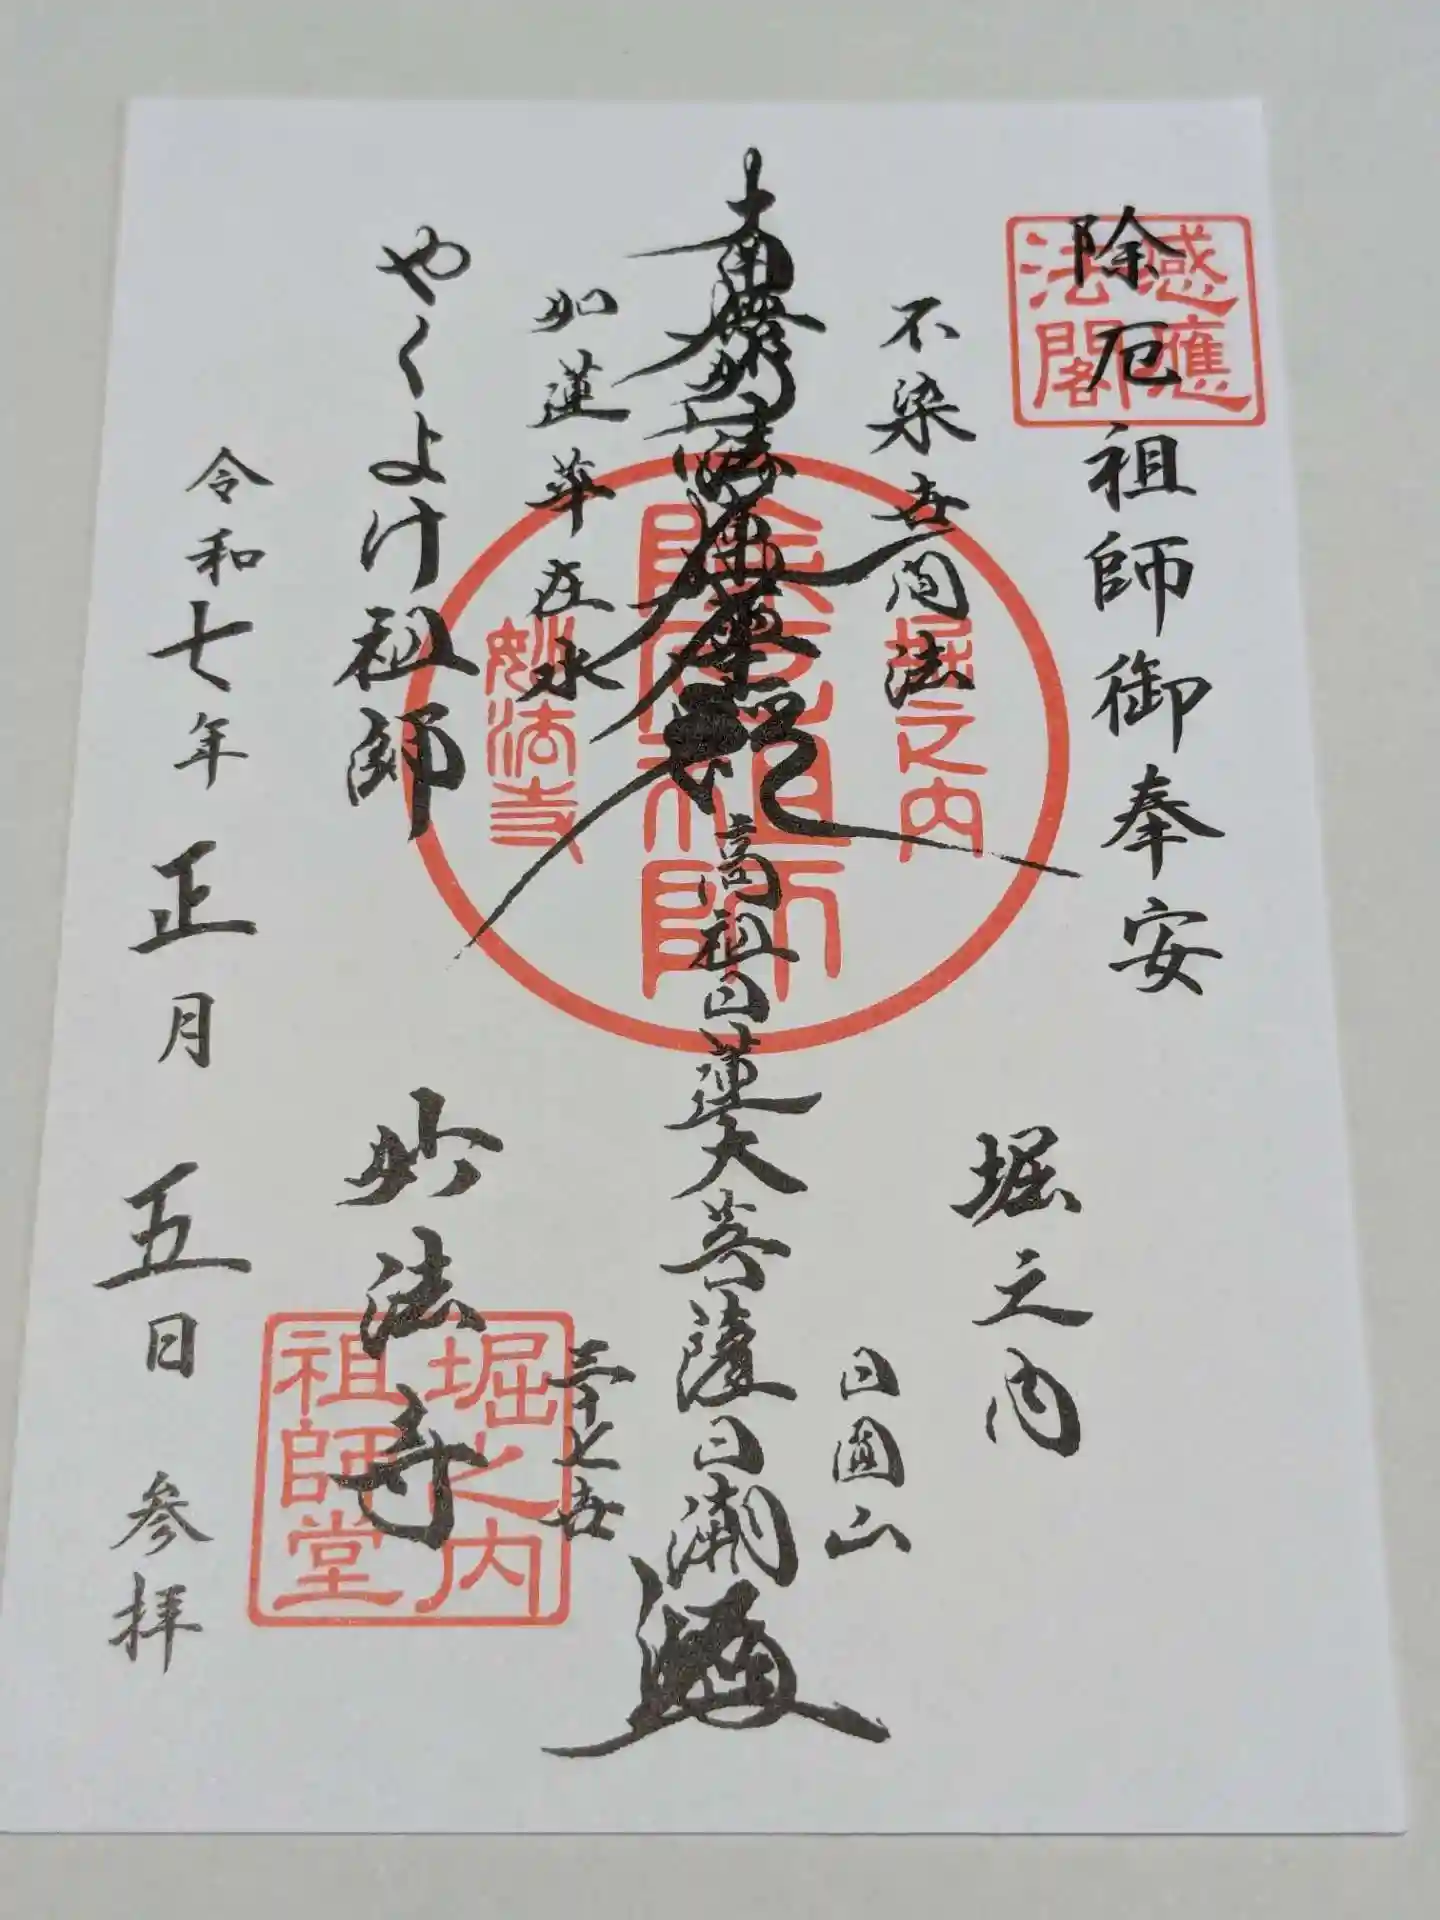 除厄祖師御奉安
感應法閣
堀之内
不染世間法
堀之内
日圓山
南無妙法蓮華経
除厄祖師
高祖日蓮大菩薩
日潮
如蓮華在水
妙法寺
三十七世
やくよけ祖師
妙法寺
堀之内祖師堂
令和七年正月五日参拝